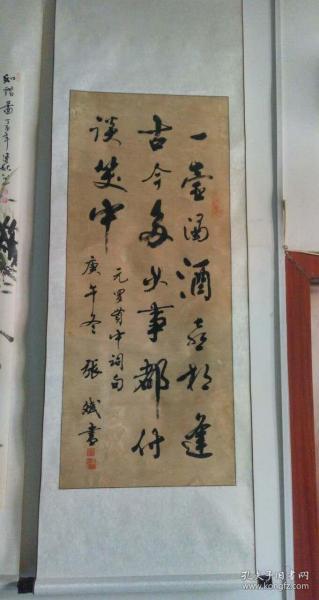 一壶浊酒喜相逢
古今多少事都付
谈笑中
元罗贯中词句
庚午冬 张斌书
和谐图 丁亥年
孔夫子旧书网
www.kongfz.com